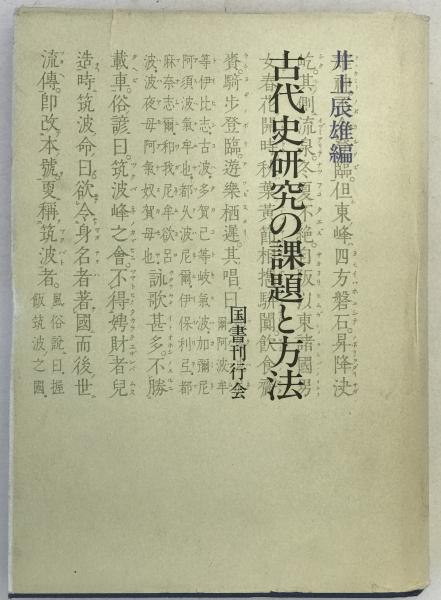 井上辰雄編
古代史研究の課題と方法
国書刊行会
臨。但東峰四方磐石。昇降決
吃。其側流泉。冬夏不絶。自坂東諸國男
女。春花開時。秋葉黄節。相携駢闐。飲食齎
賚。騎歩登臨。遊樂栖遲。其唱曰 爾阿波牟
等伊比志古波多賀己等岐氣波加彌尼
阿須波氣牟也。都久波尼爾伊保利弖都
麻奈志爾和我尼牟欲呂
波波夜母阿氣奴賀母也
詠歌甚多。不勝
載車。俗諺曰。筑波峰之會。不得娉財者。兒
造時筑波命曰。欲令身名者著國而後世
流傳。即改本號。更稱筑波者。風俗說曰。握
飯筑波之國